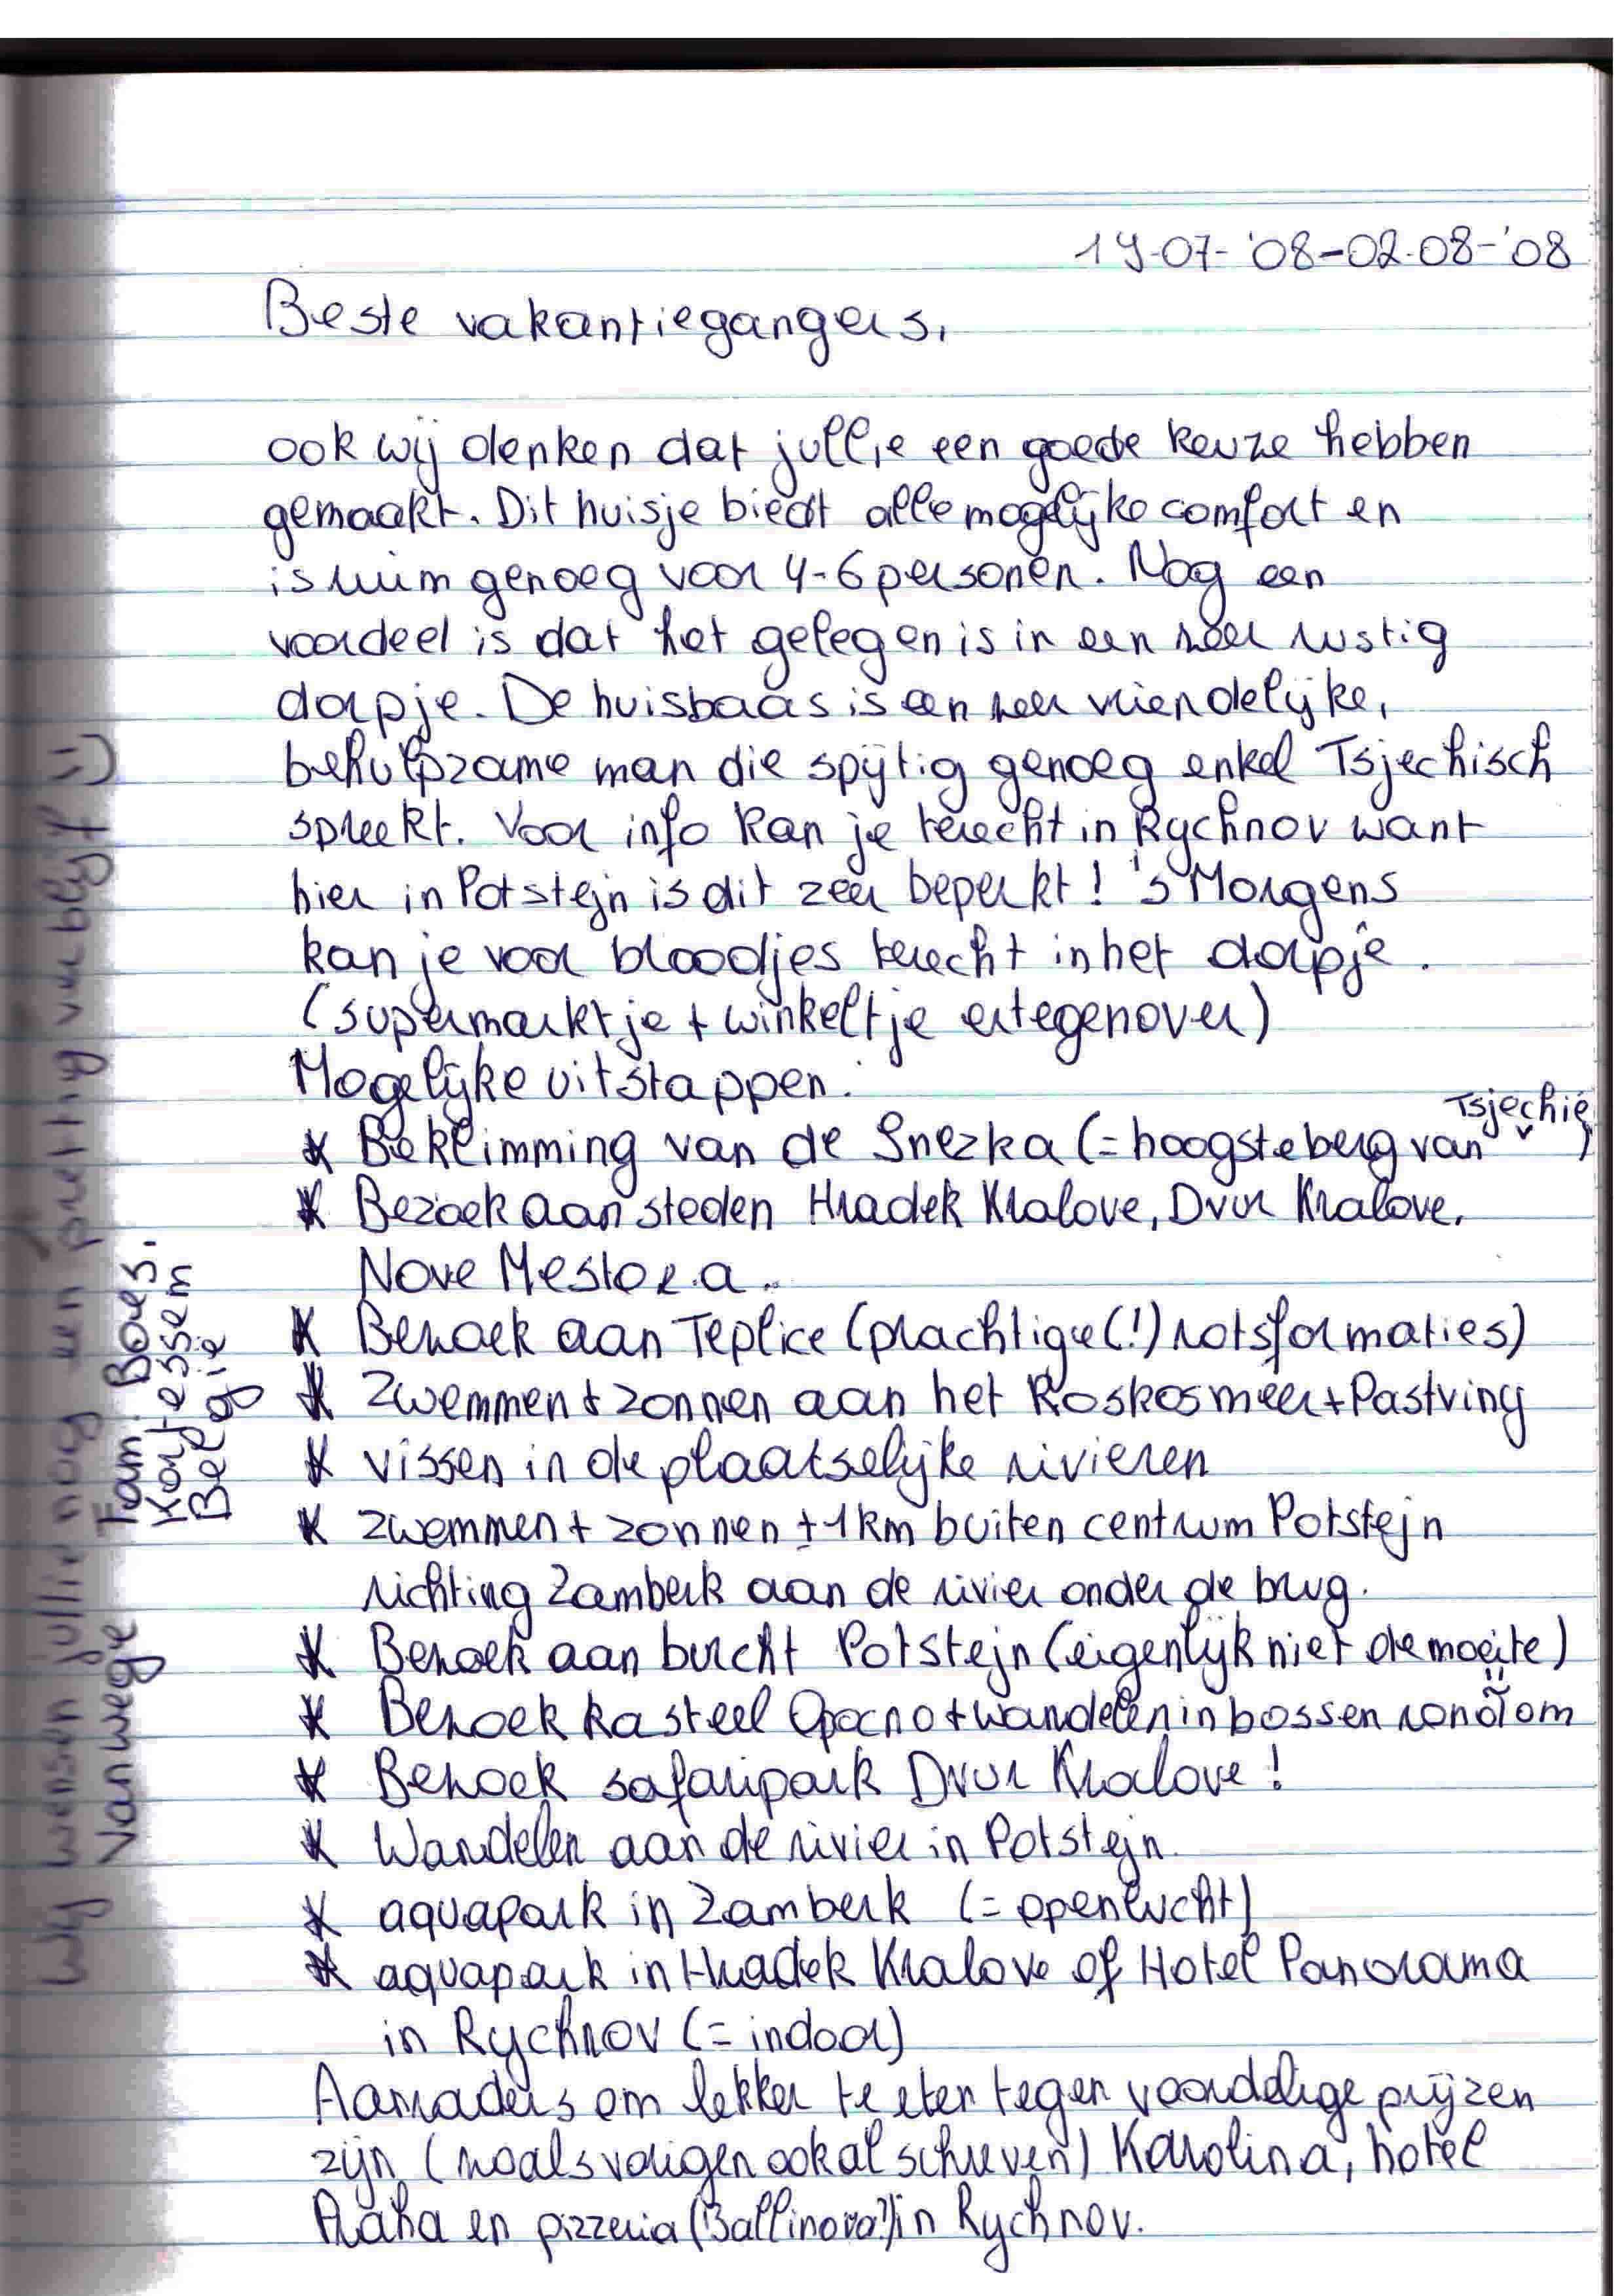 19-07-'08-02-08-'08
Beste vakantiegangers,
ook wij denken dat jullie een goede keuze hebben
gemaakt. Dit huisje biedt alle mogelijke comfort en
is ruim genoeg voor 4-6 personen. Nog een
voordeel is dat het gelegen is in een zeer rustig
dorpje. De huisbaas is een zeer vriendelijke,
behulpzame man die spijtig genoeg enkel Tsjechisch
spreekt. Voor info kan je terecht in Rychnov want
hier in Potstejn is dit zeer beperkt! 's Morgens
kan je voor broodjes terecht in het dorpje.
(supermarktje + winkeltje ertegenover)
Mogelijke uitstappen:
* Beklimming van de Snezka (= hoogste berg van Tsjechië)
* Bezoek aan steden Hradek Kralove, Dvur Kralove,
Nove Mesto e.a..
* Bezoek aan Teplice (prachtige(!) rotsformaties)
* Zwemmen + zonnen aan het Roskosmeer + Pastving
* vissen in de plaatselijke rivieren
* zwemmen + zonnen ± 1 km buiten centrum Potstejn
richting Zamberk aan de rivier onder de brug.
* Bezoek aan burcht Potstejn (eigenlijk niet de moeite)
* Bezoek kasteel Opocno + wandelen in bossen rondom
* Bezoek safaripark Dvur Kralove!
* Wandelen aan de rivier in Potstejn.
* aquapark in Zamberk (= openlucht)
* aquapark in Hradek Kralove of Hotel Panorama
in Rychnov (= indoor)
Aanraders om lekker te eten tegen voordelige prijzen
zijn (zoals vorigen ook al schreven) Karolina, hotel
Praha en pizzeria (Ballinova?) in Rychnov.
Wij wensen jullie nog een prettig verblijf :)
Vanwege Fam. Boes,
Kortessem
België